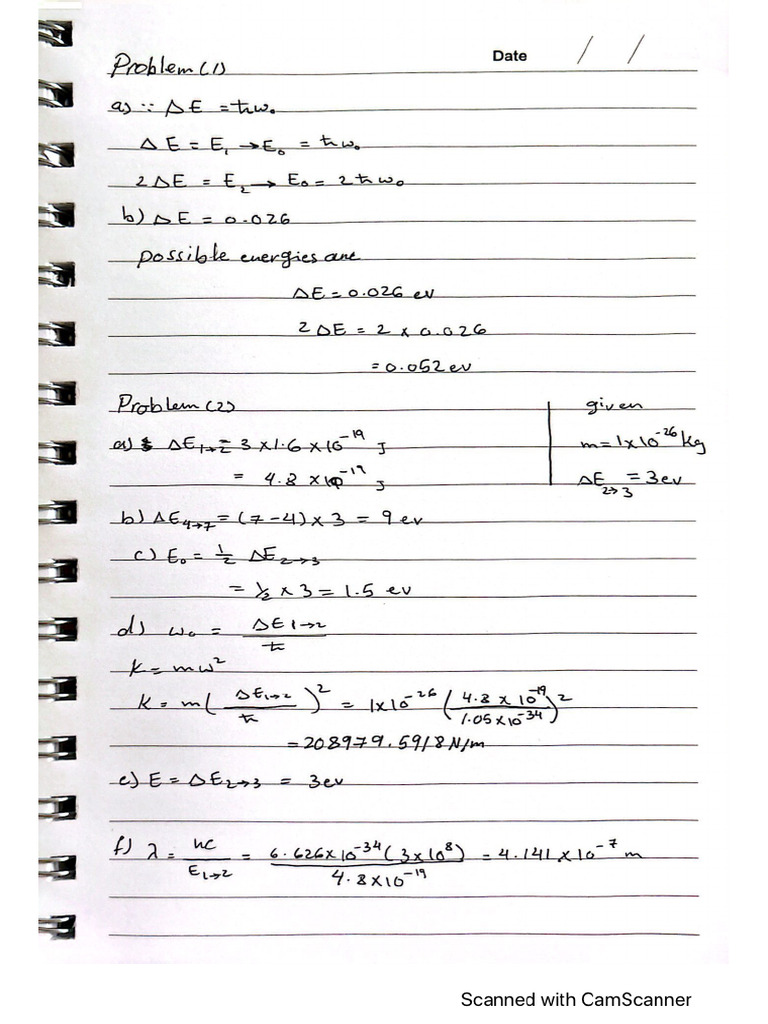 Date / /
Problem (1)
a) ∵ ΔE = ℏω₀
ΔE = E₁ → E₀ = ℏω₀
2ΔE = E₂ → E₀ = 2ℏω₀
b) ΔE = 0.026
possible energies are
ΔE = 0.026 ev
2ΔE = 2 × 0.026
= 0.052 ev
Problem (2)
given
a) ΔE₁→₂ = 3 × 1.6 × 10⁻¹⁹ J
m = 1 × 10⁻²⁶ kg
= 4.8 × 10⁻¹⁹ J
ΔE₂→₃ = 3 ev
b) ΔE₄→₇ = (7 - 4) × 3 = 9 ev
c) E₀ = ½ ΔE₂→₃
= ½ × 3 = 1.5 ev
d) ω₀ = ΔE₁→₂ / ℏ
K = mω²
K = m(ΔE₁→₂ / ℏ)² = 1×10⁻²⁶ (4.8 × 10⁻¹⁹ / 1.05 × 10⁻³⁴)²
= 208979.5918 N/m
e) E = ΔE₂→₃ = 3ev
f) λ = hc / E₁→₂ = 6.626×10⁻³⁴ (3×10⁸) / 4.8×10⁻¹⁹ = 4.141 × 10⁻⁷ m
Scanned with CamScanner